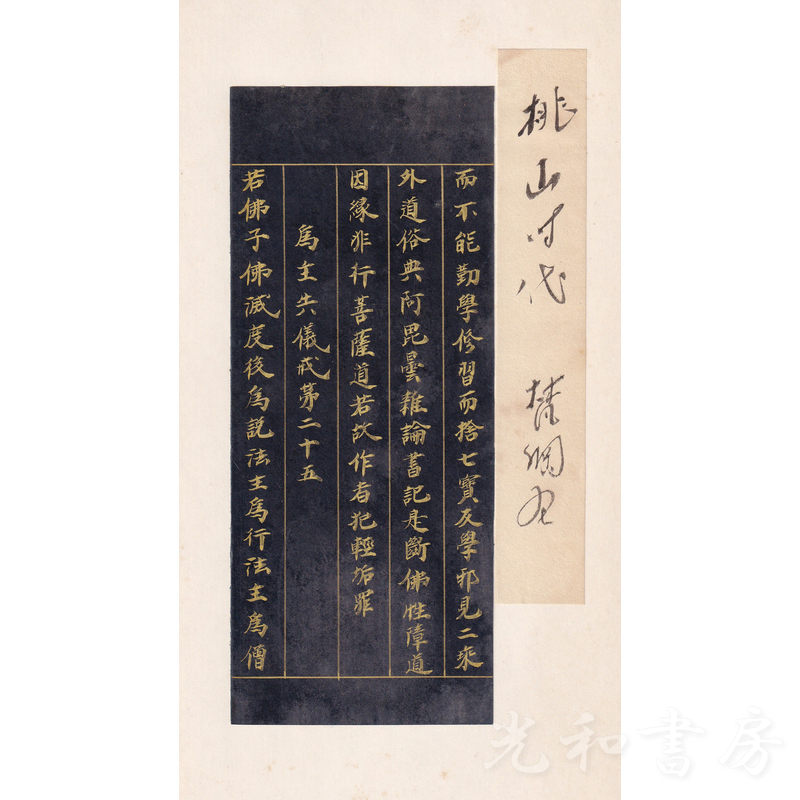 桃山时代 梵網経
而不能勤學修習而捨七寳反學邪見二乗
外道俗典阿毘曇雜論書記是斷佛性障道
因縁非行菩薩道若故作者犯輕垢罪
為主失儀戒苐二十五
若佛子佛滅度後為説法主為行法主為僧
光和書房